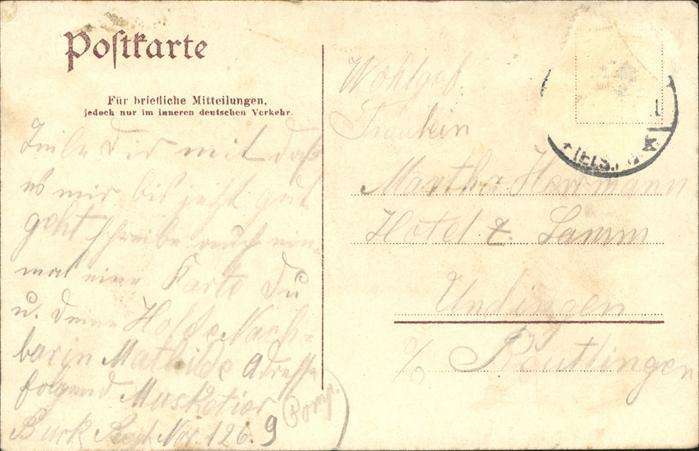 Postkarte
Für briefliche Mitteilungen,
jedoch nur im inneren deutschen Verkehr.
Teile Dir mit daß
es mir bis jetzt gut
geht schreibe auch ein-
mal eine Karte Du
u. deine Nach-
barin Mathilde Adresse
folgend Musketier
Burk Regt Nro. 126. 9 Comp.
Wohlgeb.
Fräulein
Martha
Hotel z. Lamm
Undingen
Reutlingen
(ELS.)